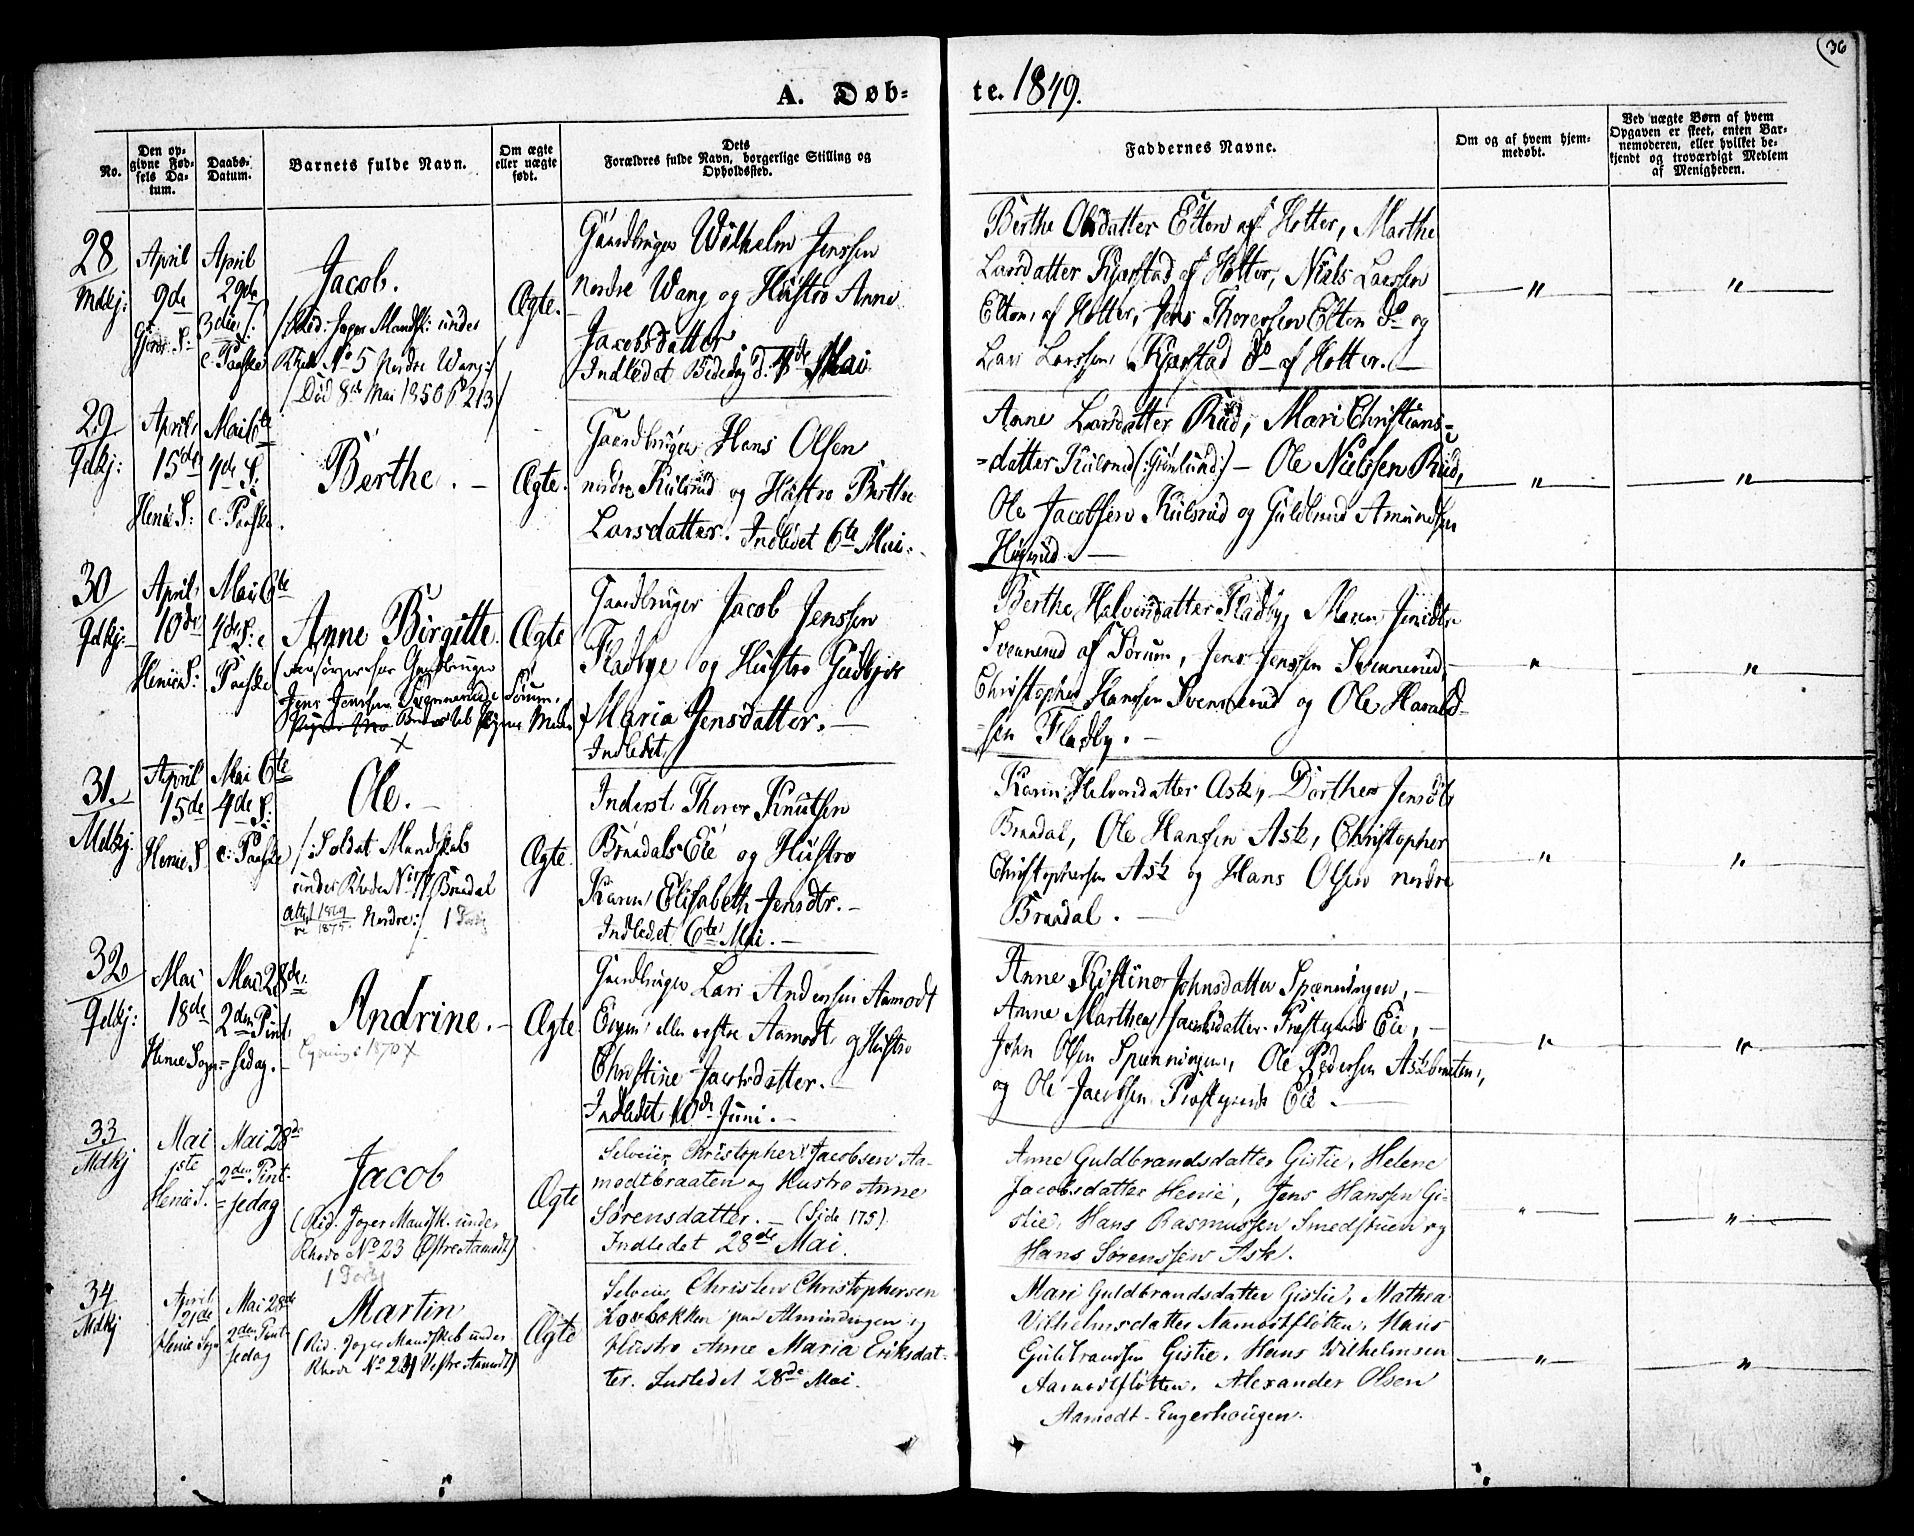 36
A. Døb-
te. 1849.
No.
Den op-
givne Fød-
sels Da-
tum.
Daabs-
Datum.
Barnets fulde Navn.
Om ægte
eller uægte
født.
Dets
Forældres fulde Navn, borgerlige Stilling og
Opholdssted.
Faddernes Navne.
Om og af hvem hjem-
medøbt.
Ved uægte Børn af hvem
Opgaven er skeet, enten Bar-
nemoderen, eller hvilket be-
kjendt og troværdigt Medlem
af Menigheden.
28
Mdkj:
April
9de
April
29de
3die S:
e. Paaske
Jacob.
/:Rid: Jæger Mandsk: under
Rhode No 5 Nordre Wang:/
/Død 8de Mai 1850 P 213/
Ægte.
Gaardbruger Wilhelm Jenssen
Nordre Wang og Hustro Anne
Jacobsdatter
Indledet Bededag d: Mai
Berthe Olsdatter Elton af Holter, Marthe
Larsdatter Kjærstad af Holter, Niels Larssen
Elton, af Holter, Jens Thoressen Elton Do og
Lars Larssen Kjærstad Do af Holter. —
"
"
29
Qdkj:
April
15de
Henie S:
Mai 6te
4de S:
e. Paaske.
Berthe. —
Ægte.
Gaardbruger Hans Olsen
nordre Kulsrud og Hustro Berthe
Larsdatter. Indledet 6te Mai. -
Anne Larsdatter Rud, Mari Christians-
=datter Kulsrud (:Grønlund:) — Ole Nielssen Rud,
Ole Jacobsen Kulsrud og Guldbrand Amundsen
"
"
30
Qdkj:
April
10de
Henie S:
Mai 6te
4de S: e
Paaske
Anne Birgitte.
Jens Jenssen Svennerud Sørum,
Ægte
Gaardbruger Jacob Jenssen
Fladbye og Hustro Gudbjør
Maria Jensdatter. —
Indledet
Berthe Halvorsdatter Fladby, Maren Jensdtr
Svennerud af Sørum, Jens Jenssen Svennerud,
Christopher Hanssen Svennerud og Ole Harald-
-sen Fladby. —
"
"
31.
Mdkj:
April
15de
Henie S.
Mai 6te
4de S:
e: Paaske
Ole. —
/:Soldat Mandskab
under Rhoden No 17 Braadal
Nordre:/
Attest 1869
1875.
Ægte.
Inderst Thorer Knutsen
Braadals Eie og Hustro
Karen Elisabeth Jensdtr. —
Indledet 6te Mai. —
Karin Halvorsdatter Ask, Dorthea Jensdtr
Braadal, Ole Hansen Ask, Christopher
Christophersen Ask og Hans Olsen nordre
Braadal. —
"
"
32
Qdkj:
Mai
18de
Henie Sogn
Mai 28de
2den Pint-
=sedag. —
Andrine. —
Ægte
Gaardbruger Lars Andersen Aamodt
Eiegn: eller østre Aamodt og Hustro
Christine Jacobsdatter. —
Indledet 10de Juni. —
Anne Kirstine Johnsdatter Spænningen, —
Anne Marthea Jacobsdatter Præstgaards Eie, —
John Olsen Spænningen, Ole Pedersen Askbraaten,
og Ole Jacobsen Præstgaards Eie. —
"
"
33
Mdkj
Mai
1ste
Henie S.
Mai 28de
2den Pint-
=sedag
Jacob
(Rid. Jæger Mandsk. under
Rhode No 23 Østre Aamodt)
Ægte
Selveier Christopher Jacobsen Aa-
modtbraaten og Hustro Anne
Sørensdatter. — (Side 175)
Indledet 28de Mai.
Anne Guldbrandsdatter Gistie, Helene
Jacobsdatter Henie, Jens Hanssen Gi-
stie, Hans Rasmussen Smedstuen og
Hans Sørenssen Ask.
"
"
34
Mdkj
April
Henie Sogn
Mai 28de
2den Pint-
sedag
Martin
(Rid. Jæger Mandskab under
Rhode No 24 Vestre Aamodt)
Ægte
Selveier Christen Christophersen
Løvbakken paa Almindingen og
Hustro Anne Maria Eriksdat-
ter. Indledet 28de Mai.
Mari Guldbrandsdatter Gistie, Mathea
Vilhelmsdatter Aamodtfløtten, Hans
Gulbrandsen Gistie, Hans Wilhelmsen
Aamodtfløtten, Alexander Olsen
Aamodt-Engerhougen.
"
"